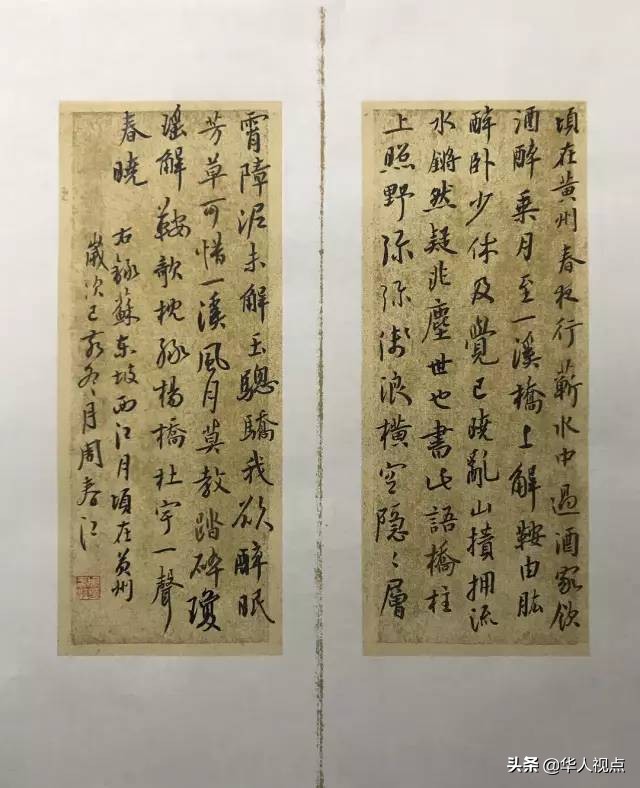 頃在黄州春夜行蘄水中過酒家飲
酒醉乘月至一溪橋上解鞍曲肱
醉卧少休及覺已曉亂山攢擁流
水鏘然疑非塵世也書此語橋柱
上照野弥弥淺浪橫空隱〻層
霄障泥未解玉驄驕我欲醉眠
芳草可惜一溪風月莫教踏碎瓊
瑤解鞍欹枕綠楊橋杜宇一聲
春曉 右錄蘇東坡西江月頃在黄州
歲次己亥冬月周春江
头条 @华人视点